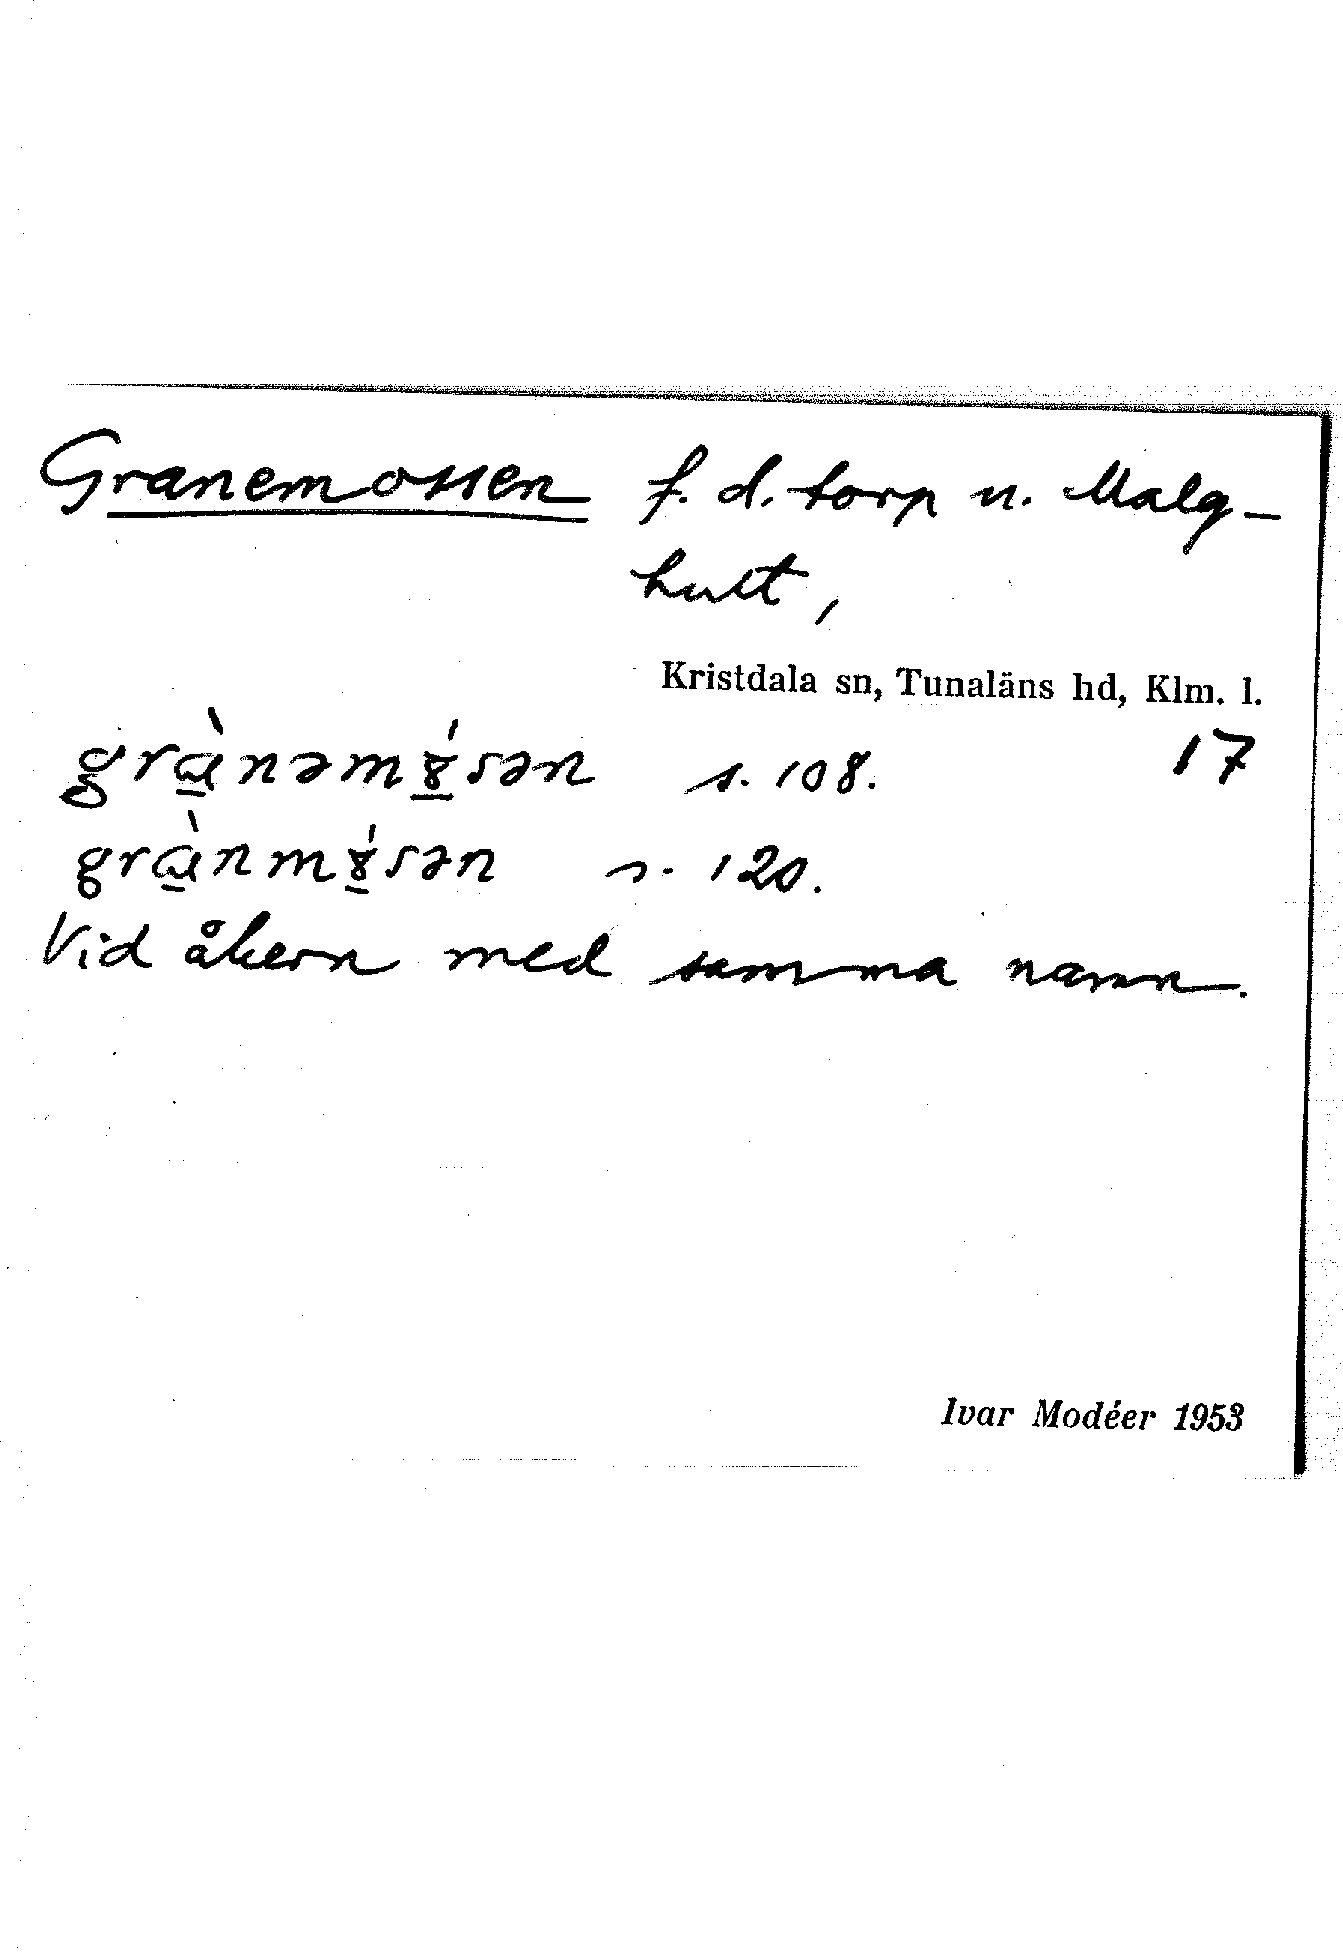 Granemossen f. d. torp u. Malg-
hult,
Kristdala sn, Tunaläns hd, Klm. l.
grɑ̀nəm8́sən s. 108. 17
grɑ̀nm8́sən s. 120.
Vid åkern med samma namn.
Ivar Modéer 1953